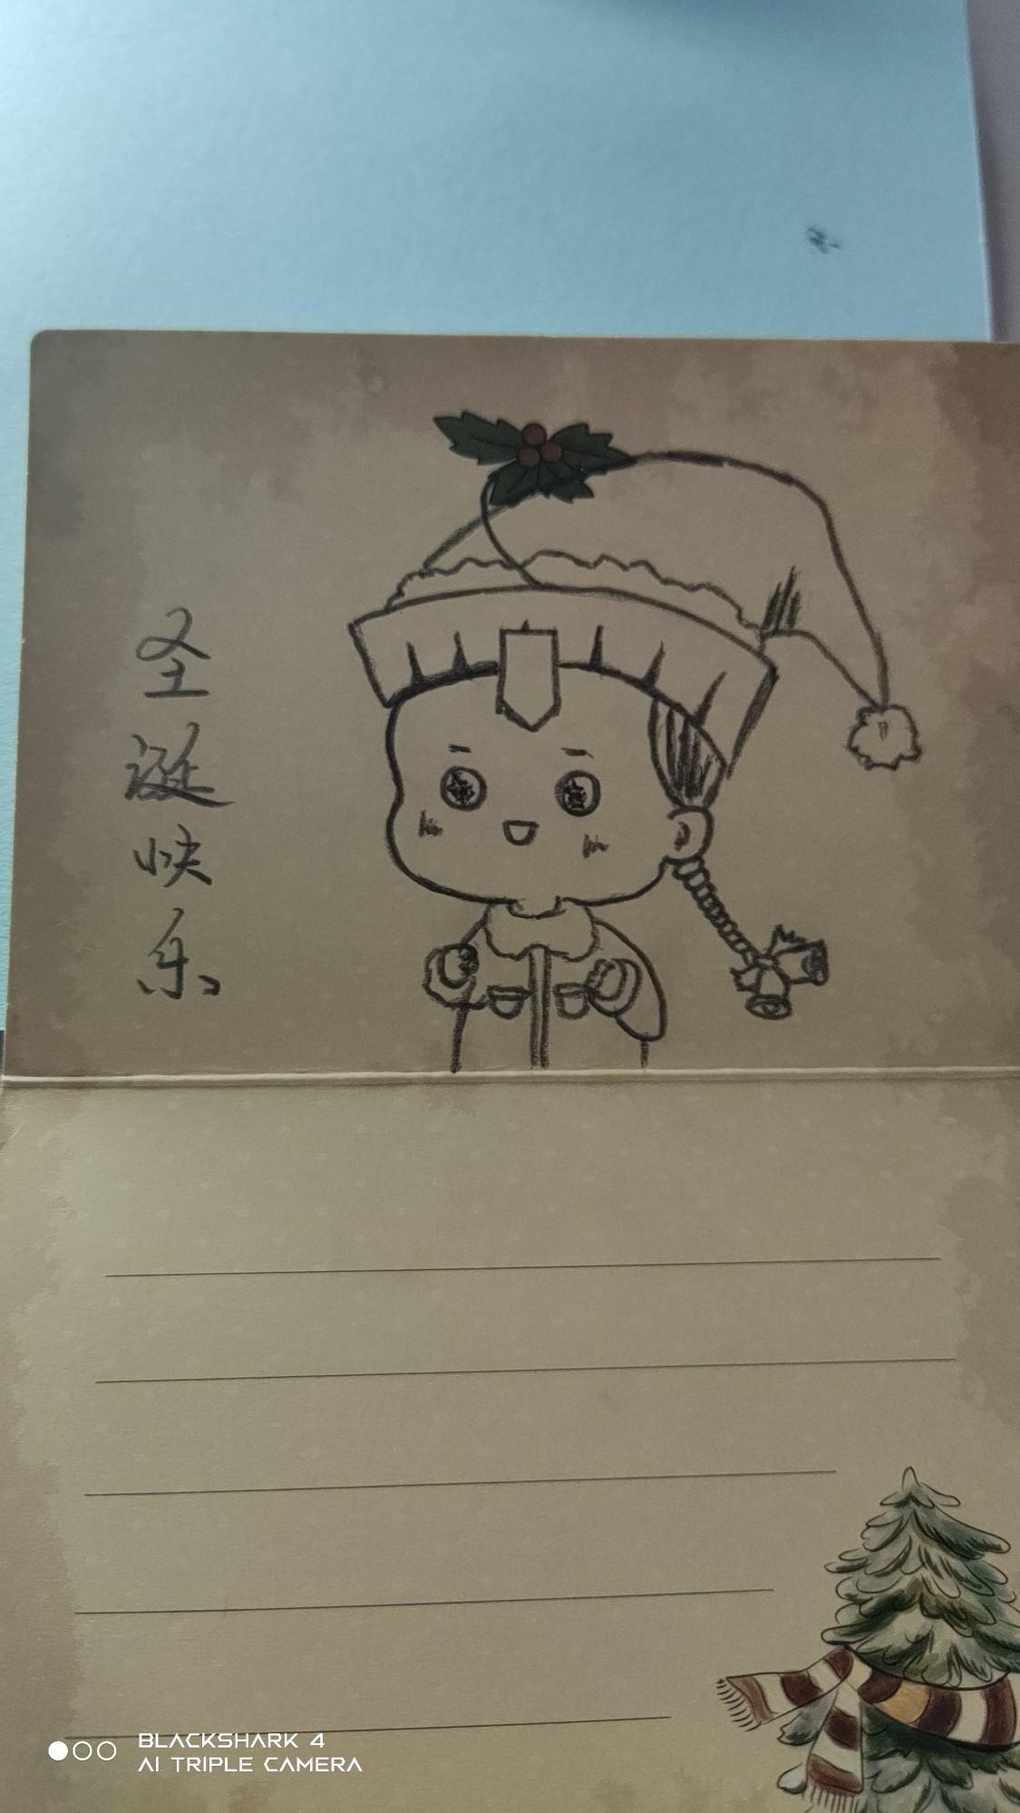 圣
诞
快
乐
BLACKSHARK 4
AI TRIPLE CAMERA